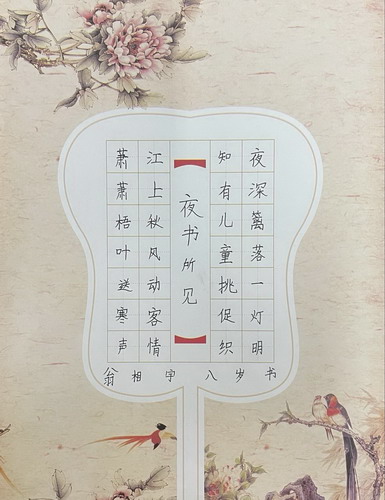 夜书所见
萧萧梧叶送寒声
江上秋风动客情
知有儿童挑促织
夜深篱落一灯明
翁相宇八岁书